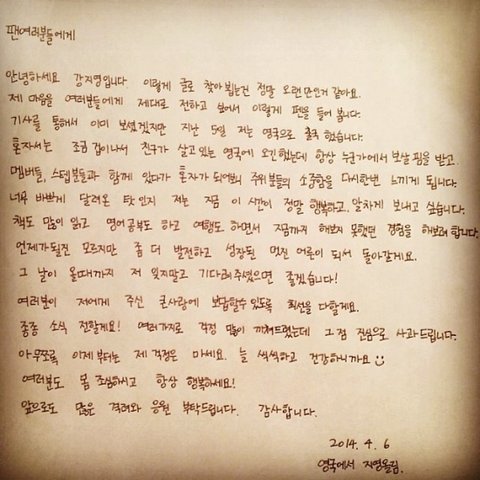 팬여러분들에게
안녕하세요 강지영입니다. 이렇게 글로 찾아뵙는건 정말 오랜만인거 같아요.
제 마음을 여러분들에게 제대로 전하고 싶어서 이렇게 펜을 들어 봅니다.
기사를 통해서 이미 보셨겠지만 지난 5일 저는 영국으로 출국 했습니다.
혼자서는 조금 겁이나서 친구가 살고있는 영국에 오긴했는데 항상 누군가에게 보살핌을 받고.
멤버들, 스텝분들과 함께 있다가 혼자가 되어보니 주위분들의 소중함을 다시한번 느끼게 됩니다.
너무 바쁘게 달려온 탓인지 저는 지금 이 시간이 정말 행복하고, 알차게 보내고 싶습니다.
책도 많이 읽고 영어공부도 하고 여행도 하면서 지금까지 해보지 못했던 경험을 해보려 합니다.
언제가될진 모르지만 좀 더 발전하고 성장된 멋진 어른이 되서 돌아갈게요.
그 날이 올때까지 저 잊지말고 기다려주셨으면 좋겠습니다!
여러분이 저에게 주신 큰사랑에 보답할수 있도록 최선을 다할게요.
종종 소식 전할게요! 여러가지로 걱정 많이 끼쳐드렸는데 그점 진심으로 사과드립니다.
아무쪼록 이제부터는 제 걱정은 마세요. 늘 씩씩하고 건강하니까요
여러분도 몸 조심하시고 항상 행복하세요!
앞으로도 많은 격려와 응원 부탁드립니다. 감사합니다.
2014. 4. 6
영국에서 지영올림.